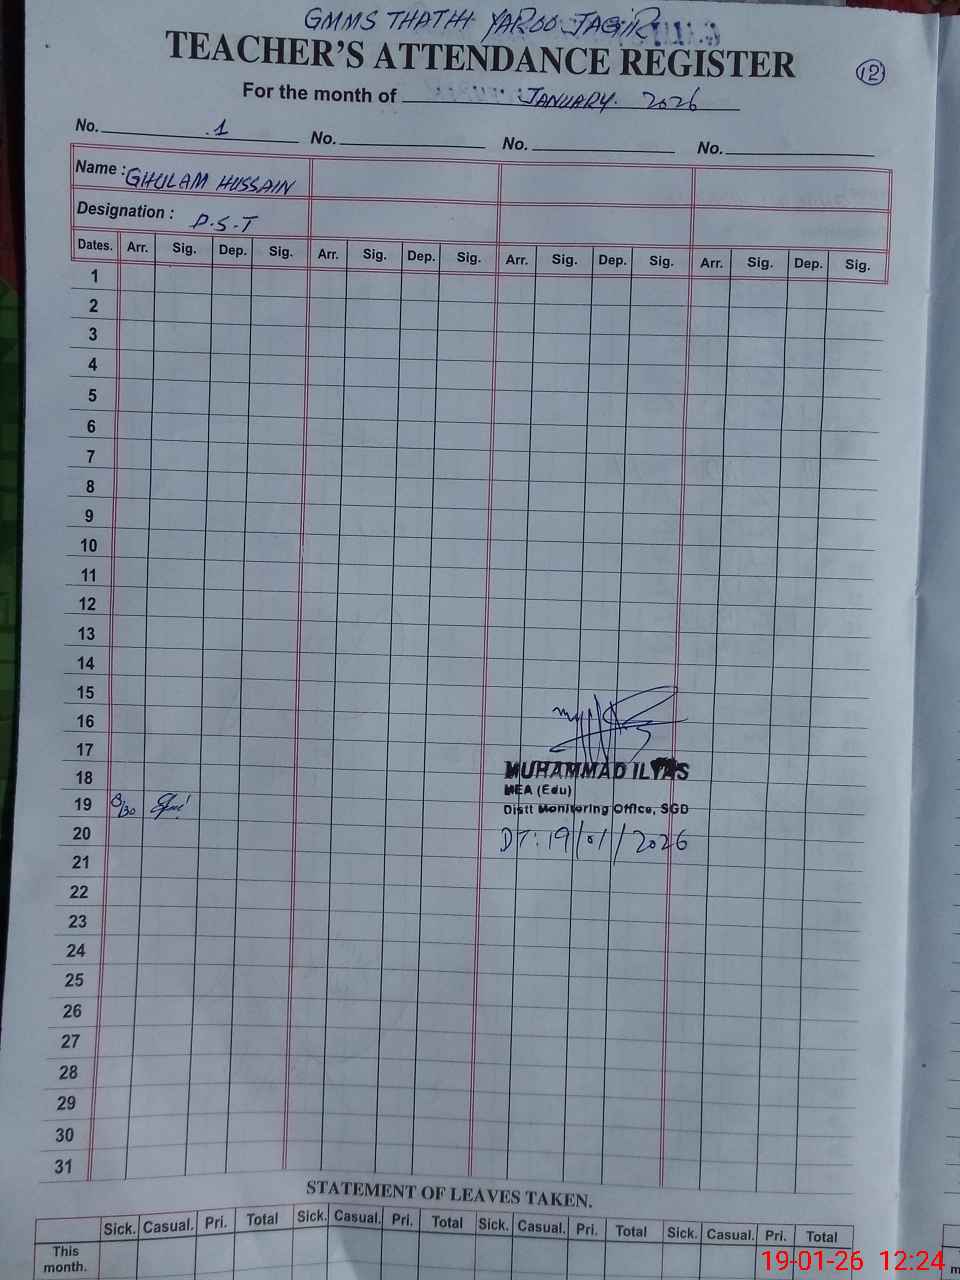 GMMS THATHI YAROO JAGIR
TEACHER'S ATTENDANCE REGISTER
12
For the month of JANUARY. 2026
No. 1 No. No. No.
Name : GHULAM HUSSAIN
Designation : P.S.T
Dates. Arr. Sig. Dep. Sig. Arr. Sig. Dep. Sig. Arr. Sig. Dep. Sig. Arr. Sig. Dep. Sig.
1
2
3
4
5
6
7
8
9
10
11
12
13
14
15
16
17
18
MUHAMMAD ILYAS
MEA (Edu)
19 8/30
Distt Monitoring Office, SGD
20
DT: 19/01/2026
21
22
23
24
25
26
27
28
29
30
31
STATEMENT OF LEAVES TAKEN.
Sick. Casual. Pri. Total Sick. Casual. Pri. Total Sick. Casual. Pri. Total Sick. Casual. Pri. Total
This
month.
19-01-26 12:24